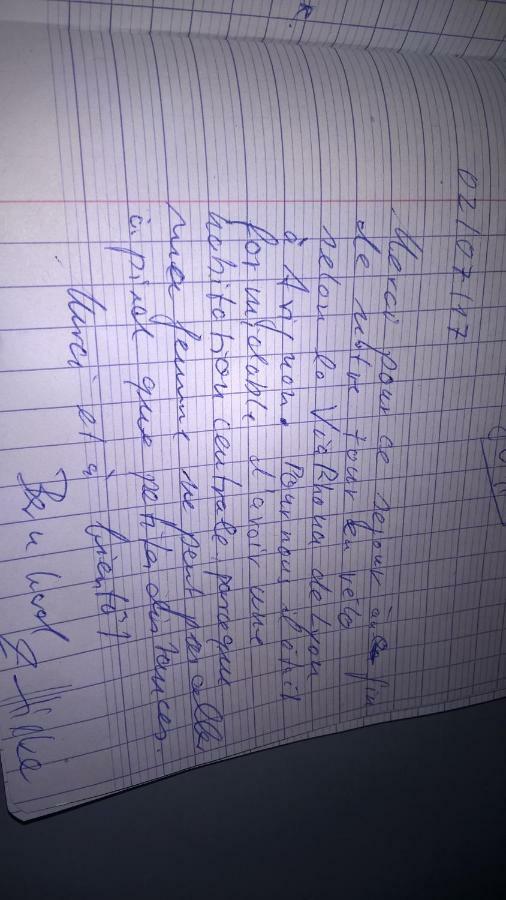 02/07/17
Merci pour ce sejour à la fin
de nôtre tour en velo
selon la ViaRhona de Lyon
à Avignon. Pour nous il était
formidable d'avoir une
habitation centrale parceque
mea femme ne peut pas aller
à pied que petites distances.
Merci et à bientôt